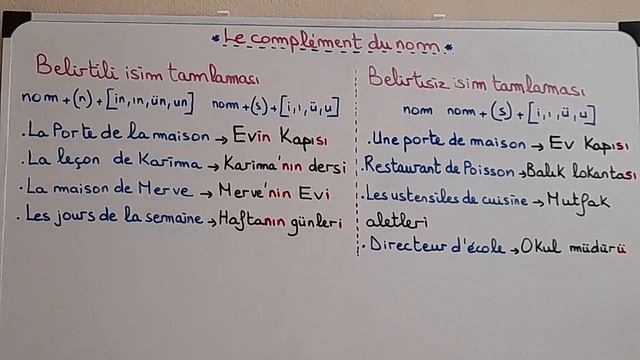 *Le complément du nom*
Belirtili isim tamlaması
nom + (n) + [in, ın, ün, un] nom + (s) + [i, ı, ü, u]
. La Porte de la maison → Evin Kapısı
. La leçon de Karima → Karima'nın dersi
. La maison de Merve → Merve'nin Evi
. Les jours de la semaine → Haftanın günleri
Belirtisiz isim tamlaması
nom nom + (s) + [i, ı, ü, u]
. Une porte de maison → Ev Kapısı
. Restaurant de Poisson → Balık lokantası
. Les ustensiles de cuisine → Mutfak
aletleri
. Directeur d'école → Okul müdürü